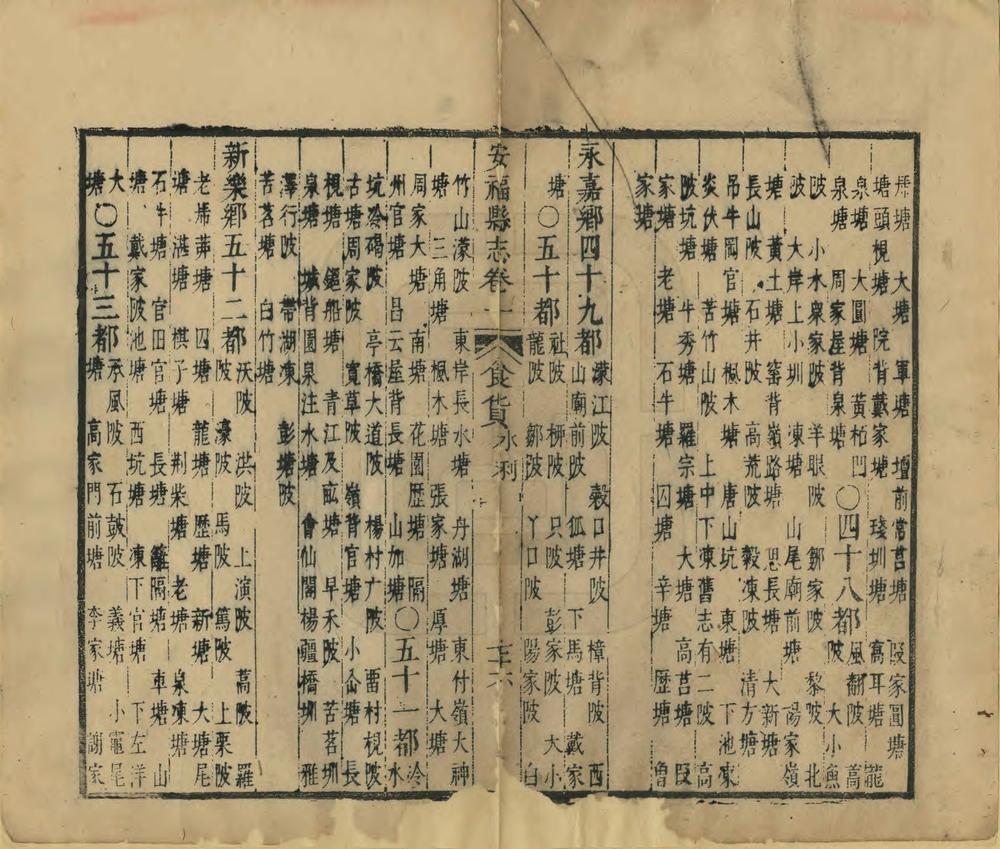 塘 大塘 軍塘 壇前常莒塘 段家圓塘
塘頭梘塘 院背戴家塘 㘰圳塘 窩耳塘 龍
泉塘 大圓塘 黃栢門〇四十八都風翻陂 高
泉塘 周家屋背泉塘 陂 大小魚
陂 小水衆家陂 羊眼陂 鄒家陂 黎陂 北
陂 大岸上小圳 凍塘 山尾廟前塘 陽家嶺
塘 黃土塘 窰背嶺路塘 思長塘 大新塘
長山陂 石井陂 高荒陂 穀凍陂 清方塘
吊牛岡官塘 楓木塘 唐山坑 東塘 下池凍
炎伏塘 苦竹山陂 上中下凍舊志有二陂 高
陂坑塘 牛秀塘 羅宗塘 大塘 高莒塘 段
家塘 老塘 石牛塘 囚塘 辛塘 歷塘 魯
家塘
永嘉鄉四十九都濛江陂 穀口井陂 樟背陂 西
山廟前陂 狐塘 下馬塘 戴家
塘〇五十都社陂 柳陂 只陂 彭家陂 大小
龍陂 鄒陂 丫口陂 陽家陂 白
安福縣志卷一 食貨 水利 三十六
竹山濛陂 東岸長水塘 丹湖塘 東付嶺大神
塘 三角塘 楓木塘 張家塘 厚塘 大塘
周家大塘 南塘 花園歷塘 隔塘〇五十一都冷水
州官塘 昌云屋背長塘 山加塘
坑冷碣陂 亭橋大道陂 楊村广陂 畱村梘陂
古塘周家陂 寬草陂 嶺背官塘 小崙塘 長
梘塘 鎚船塘 青江及㽘塘 早禾陂 苦茗圳
泉塘 城背園泉注水塘 會仙閣楊疆橋圳 雅
澤行陂 帶湖凍 彭塘陂
苦茗塘 白竹塘
新樂鄉五十二都沃陂 洪陂 上演陂 蒿陂 羅
濠陂 馬陂 篤陂 上栗陂
老埽莽塘 四塘 龍塘 歷塘 新塘 大塘尾
塘 湛塘 棋子塘 荆柴塘 老塘 泉凍塘
石牛塘 官田官塘 長塘 籬隔塘 車塘 山
塘 戴家陂池塘 西坑塘 凍下官塘 下左洋
大 承風陂 石鼓陂 義塘 小竈尾
塘〇五十三都塘 高家門前塘 李家塘 謝家